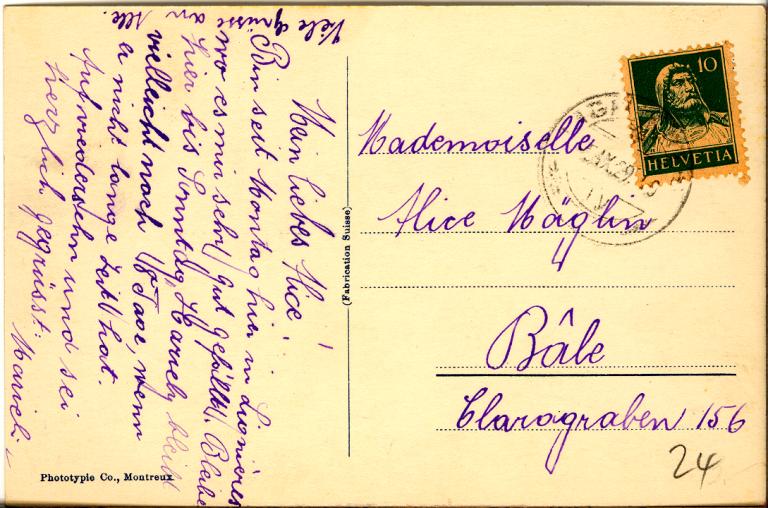 Viele Grüsse an
Alle.
Mein liebes Alice!
Bin seit Montag hier in
wo es mir sehr gut gefällt. Bleibe
hier bis Sonntag, bleibt
vielleicht noch 8 Tage, wenn
er nicht lange Zeit hat.
Auf wiedersehn und sei
herzlich gegrüsst:
(Fabrication Suisse)
Phototypie Co., Montreux
10
HELVETIA
Mademoiselle
Alice Mäglin
Bâle
Claragraben 156
24